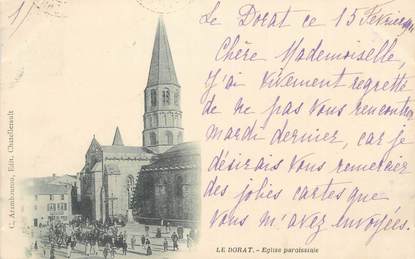 Le Dorat ce 15 Février
Chère Mademoiselle,
J'ai vivement regretté
de ne pas vous rencontrer
mardi dernier, car je
désirais vous remercier
des jolies cartes que
vous m'avez envoyées.
LE DORAT. - Eglise paroissiale
Edit. Chatellerault